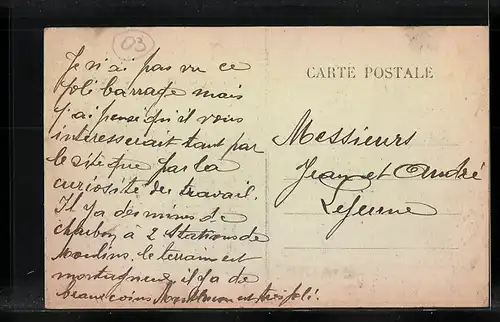 03
Je n'ai pas vu ce
joli barrage mais
j'ai pensé qu'il vous
intéresserait tant par
le site que par la
curiosité du travail.
Il y a des mines de
charbon à 2 stations de
Moulins. le terrain est
montagneux il y a de
beaux coins Montluçon est très joli.
CARTE POSTALE
Messieurs
Jean et André
Lejeune